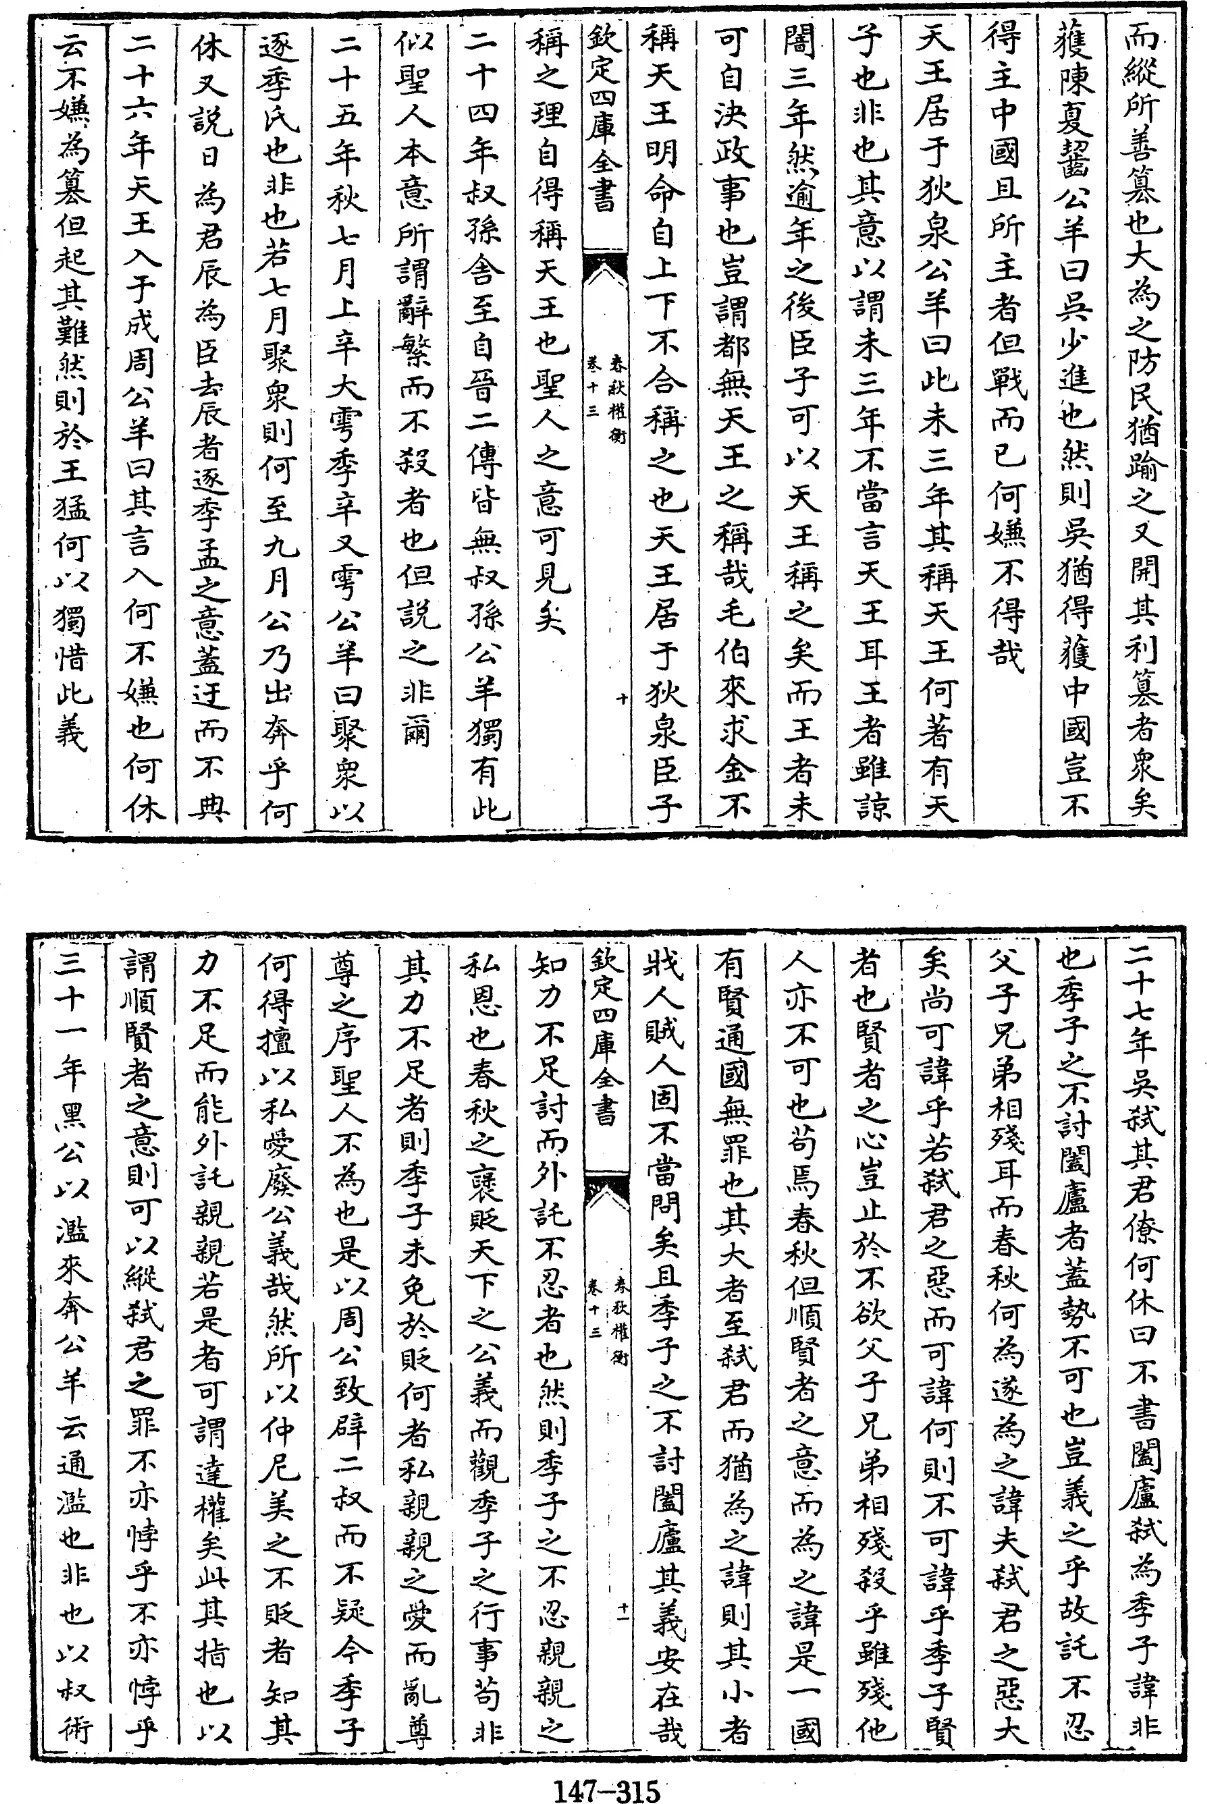 而縱所善篡也大為之防民猶踰之又開其利篡者衆矣
獲陳夏齧公羊曰吳少進也然則吳猶得獲中國豈不
得主中國且所主者但戰而已何嫌不得哉
天王居于狄泉公羊曰此未三年其稱天王何著有天
子也非也其意以謂未三年不當言天王耳王者雖諒
闇三年然逾年之後臣子可以天王稱之矣而王者未
可自決政事也豈謂都無天王之稱哉毛伯來求金不
稱天王明命自上下不合稱之也天王居于狄泉臣子
欽定四庫全書
春秋權衡
卷十三
十
稱之理自得稱天王也聖人之意可見矣
二十四年叔孫舍至自晉二傳皆無叔孫公羊獨有此
似聖人本意所謂辭繁而不殺者也但説之非爾
二十五年秋七月上辛大雩季辛又雩公羊曰聚衆以
逐季氏也非也若七月聚衆則何至九月公乃出奔乎何
休又説日為君辰為臣去辰者逐季孟之意蓋迂而不典
二十六年天王入于成周公羊曰其言入何不嫌也何休
云不嫌為篡但起其難然則於王猛何以獨惜此義
二十七年吳弑其君僚何休曰不書闔廬弑為季子諱非
也季子之不討闔廬者蓋勢不可也豈義之乎故託不忍
父子兄弟相殘耳而春秋何為遂為之諱夫弑君之惡大
矣尚可諱乎若弑君之惡而可諱何則不可諱乎季子賢
者也賢者之心豈止於不欲父子兄弟相殘殺乎雖殘他
人亦不可也苟焉春秋但順賢者之意而為之諱是一國
有賢通國無罪也其大者至弑君而猶為之諱則其小者
戕人賊人固不當問矣且季子之不討闔廬其義安在哉
欽定四庫全書
春秋權衡
卷十三
十一
知力不足討而外託不忍者也然則季子之不忍親親之
私恩也春秋之襃貶天下之公義而觀季子之行事苟非
其力不足者則季子未免於貶何者私親親之愛而亂尊
尊之序聖人不為也是以周公致辟二叔而不疑今季子
何得擅以私愛廢公義哉然所以仲尼美之不貶者知其
力不足而能外託親親若是者可謂達權矣此其指也以
謂順賢者之意則可以縱弑君之罪不亦悖乎不亦悖乎
三十一年黑公以濫來奔公羊云通濫也非也以叔術
147-315